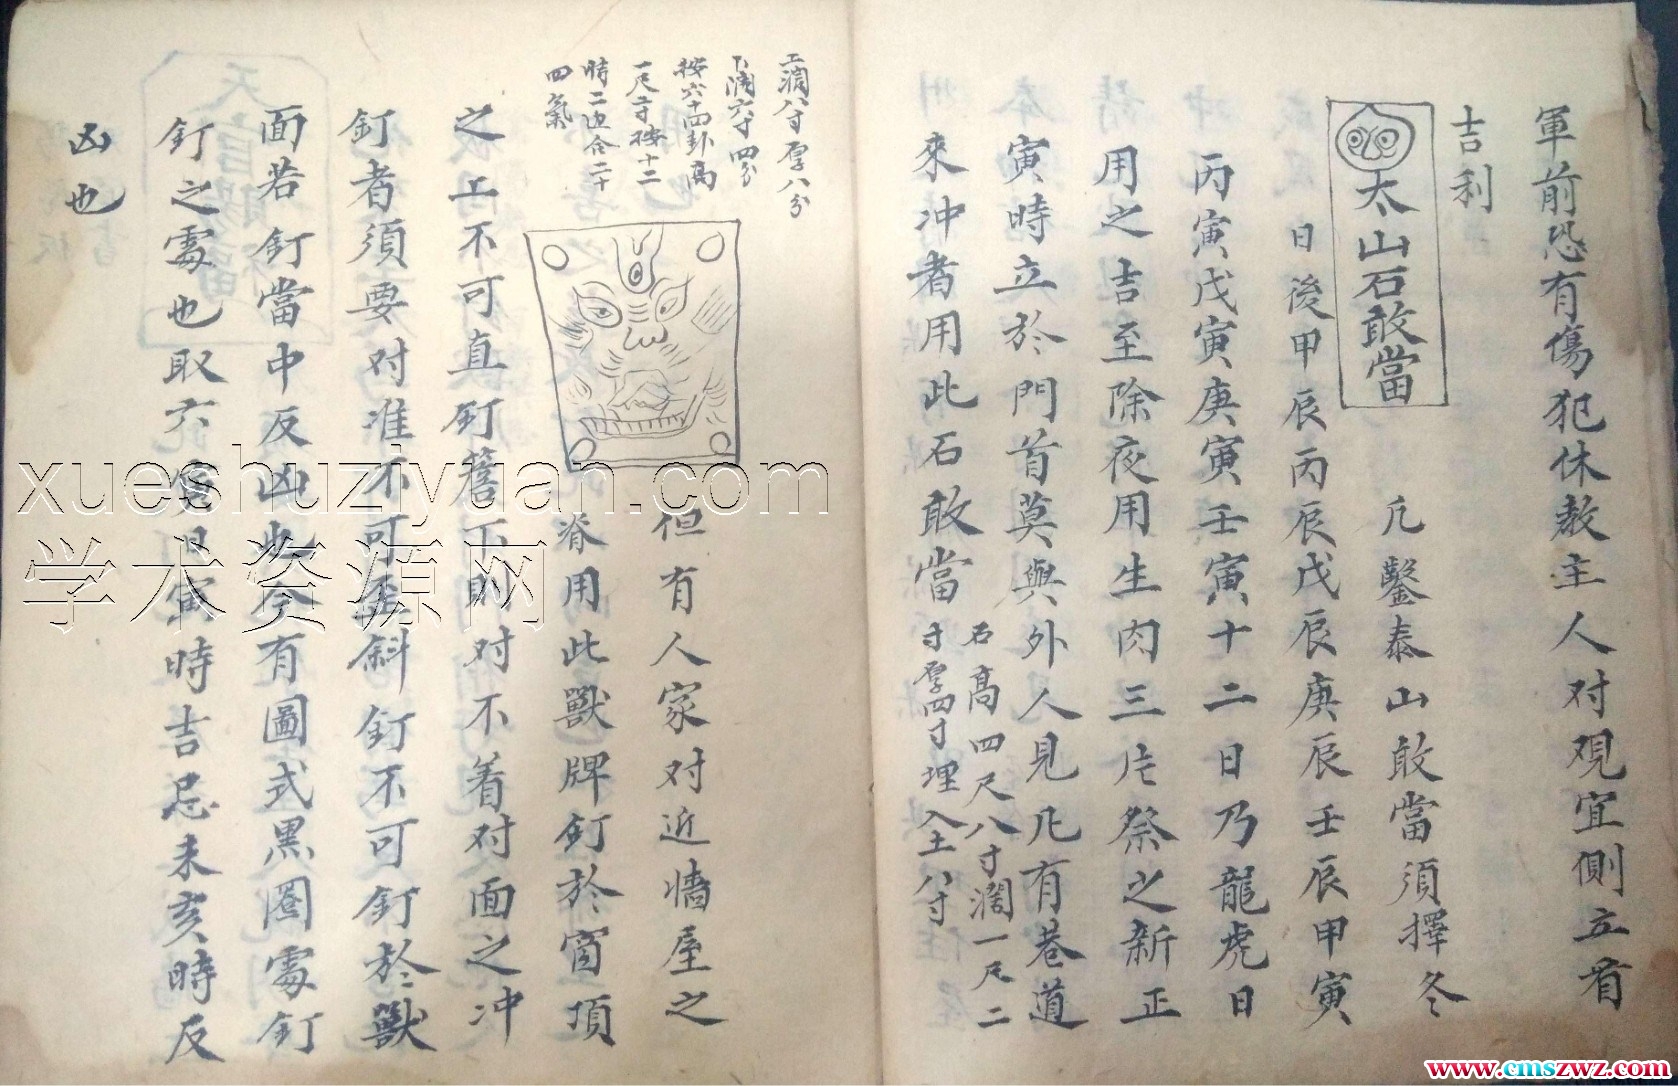 軍前恐有傷犯休教主人对观宜側立看
吉利
太山石敢當
凡鑿泰山敢當須擇冬
日後甲辰丙辰戊辰庚辰壬辰甲寅
丙寅戊寅庚寅壬寅十二日乃龍虎日
用之吉至除夜用生肉三片祭之新正
寅時立於門首莫與外人見凡有巷道
來冲者用此石敢當
石高四尺八寸濶一尺二
寸厚四寸埋入土八寸
上濶八寸厚八分
下濶六寸四分
按六十四卦高
一尺二寸按十二
時二边合二十
四氣
但有人家对近墻屋之
脊用此獸牌釘於窗頂
之上不可直釘簷下則对不着对面之冲
釘者須要对准不可歪斜釘不可釘於獸
面若釘當中反凶此今有圖式黑圈處釘
釘之處也取六寅日寅時吉忌未亥時反
凶也
天官賜福
xueshuziyuan.com
学术资源网
www.cmszwz.com